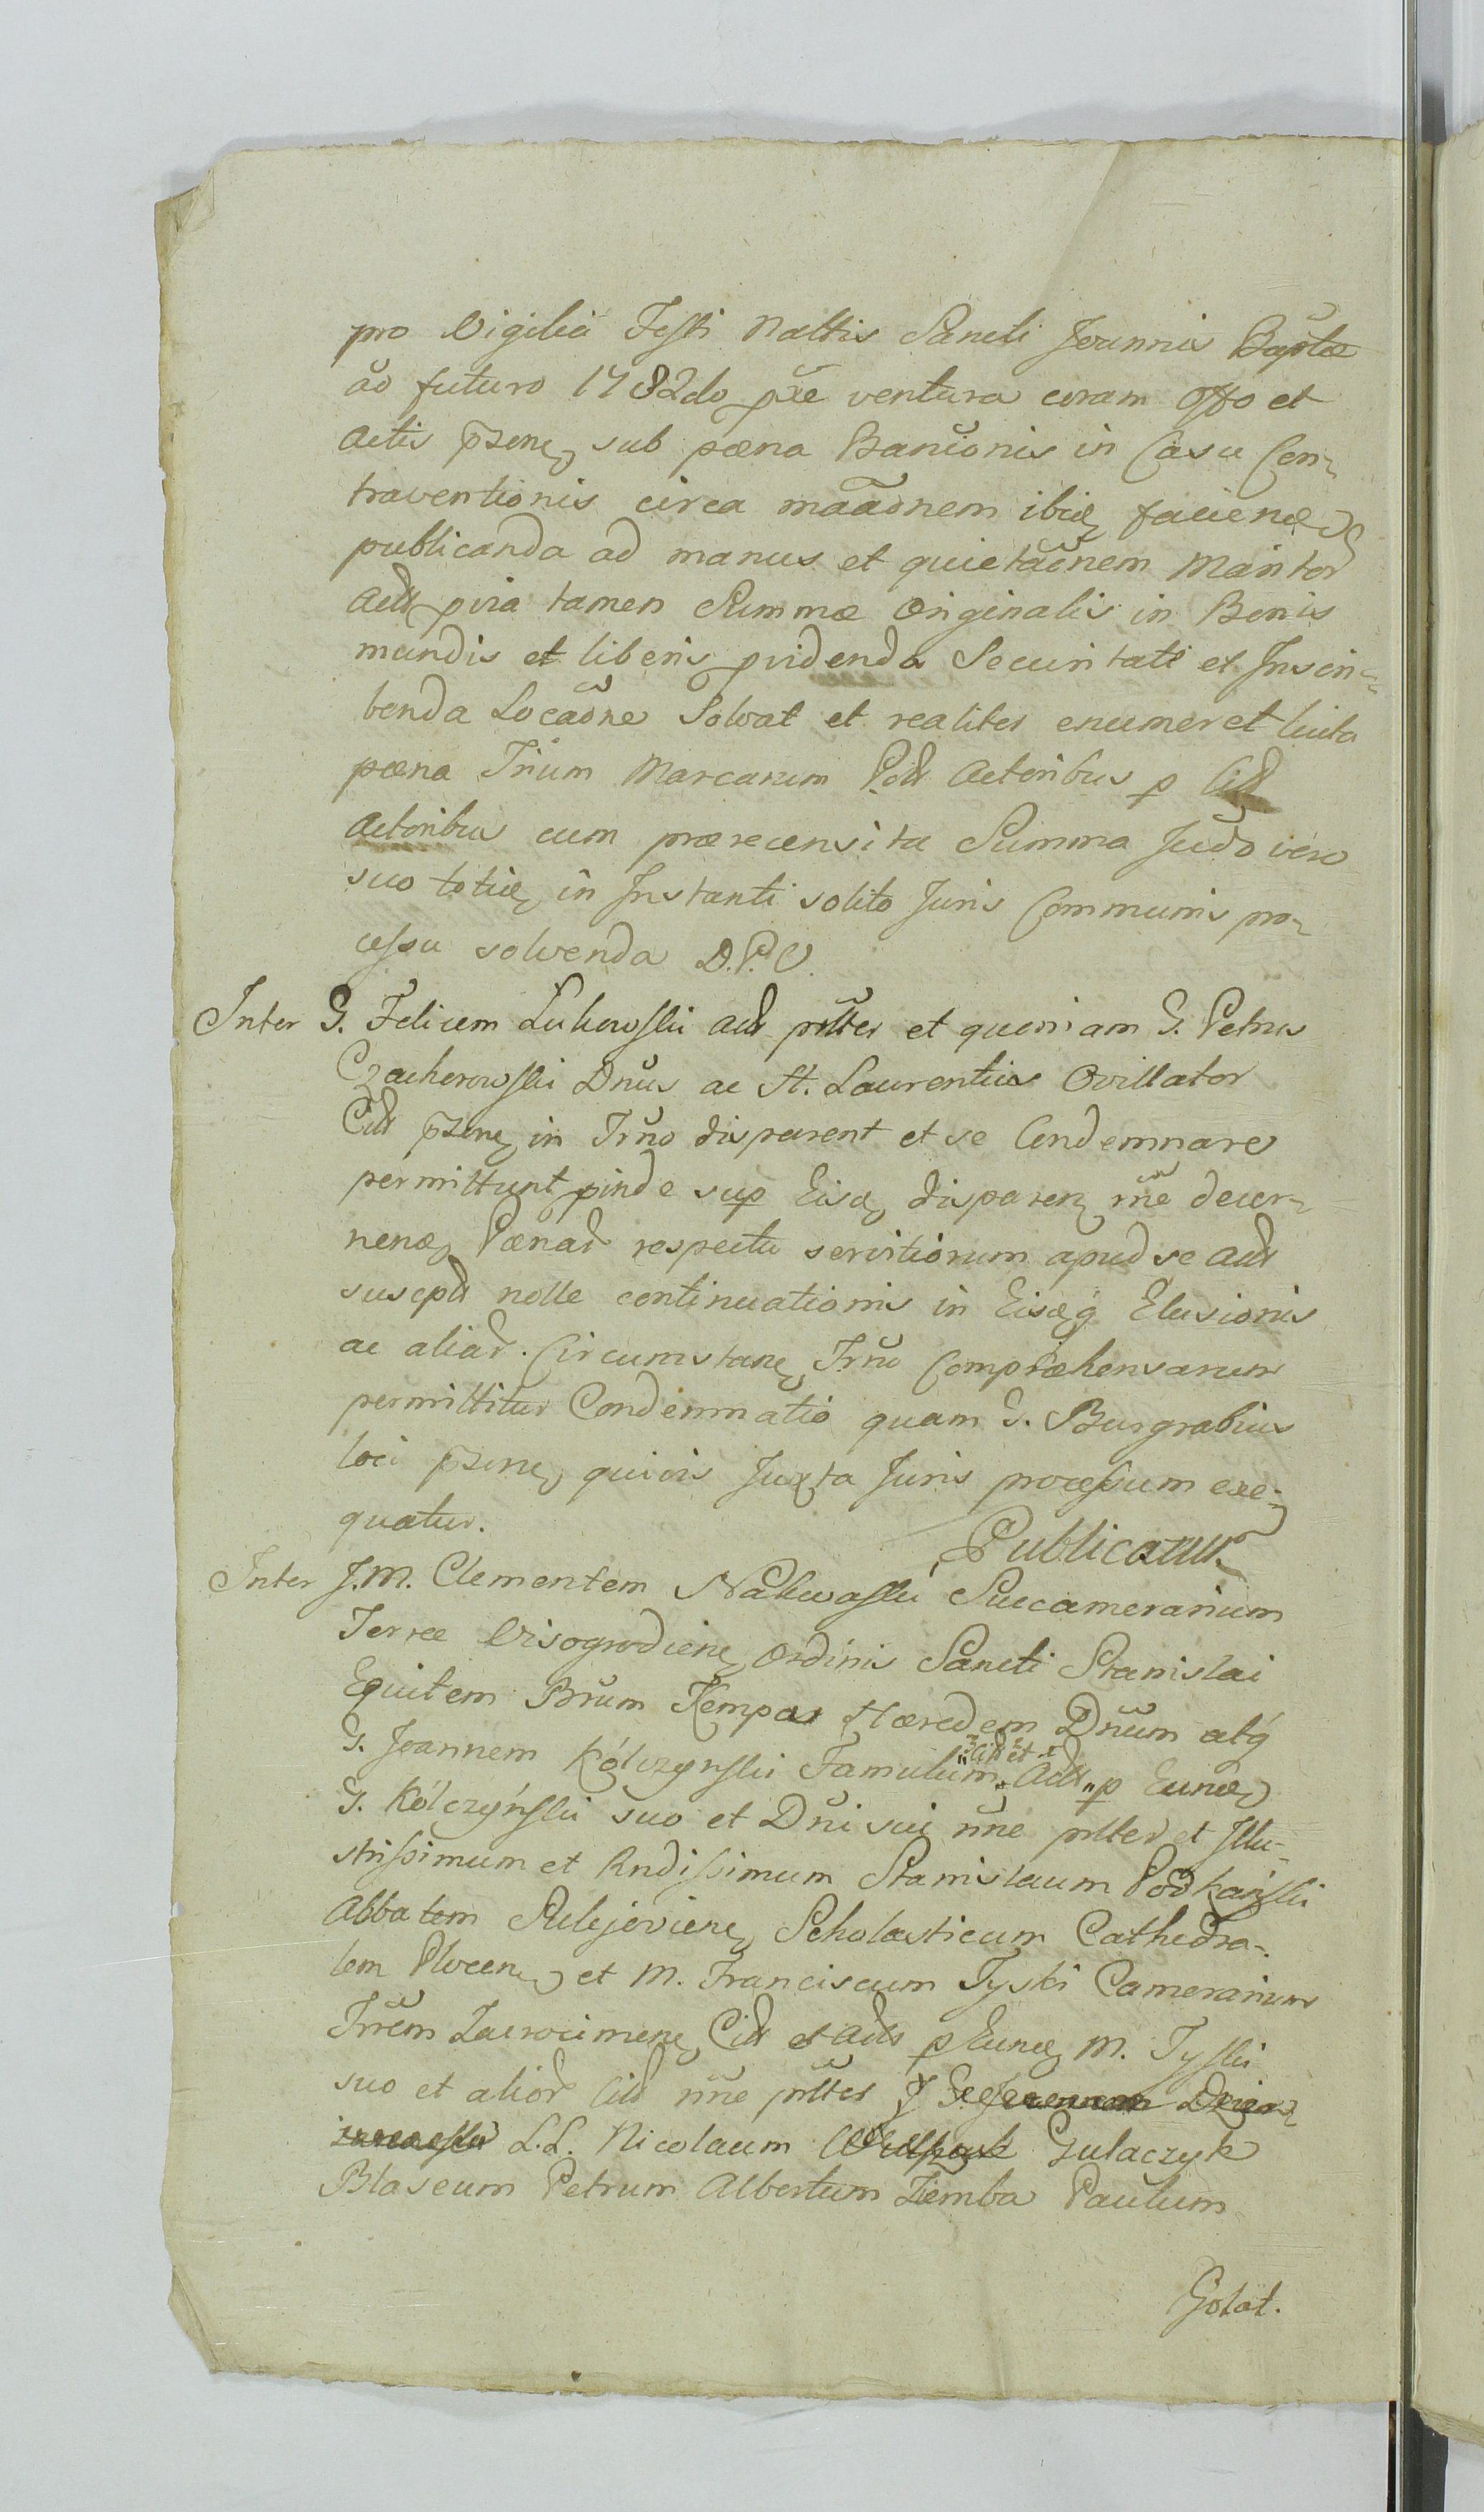 pro Vigilia Festi Naltis Sancti Joannis Baptæ
ao futuro 1782do pxe ventura coram Offo et
Actis pzenę sub pæna Banionis in Casu Con-
traventionis circa maaonem ibidę faciendę
publicanda ad manus et quietaonem Manitor
Actt pvia tamen Summæ Originalis in Bonis
mundis et liberis pvidenda Securitate et Inscri-
benda Locaone Solvat et realiter enumeret luita
pæna Trium Marcarum Pdtt Actoribus p Citt
Actoribus cum prærecensita Summa Judo vero
suo totidę in Instanti solito Juris Communis pro-
cessu solvenda D.P.V.
Inter G. Felicem Lukowski Actt plltes et quoniam G. Petrus
Czacherowski Dnus ac H. Laurentius Ovillator
Citt pzenę in Trno disparent et se Condemnare
permittunt pinde sup Eisdę disparenę rne decer-
nendę Pænar respectu servitiorum apud se Actt
susceptt nolle continuationis in Eisdęq Elusionis
ac aliar. Circumstanę Trno Compræhensarum
permittitur Condemnatio quam G. Burgrabius
loci pzenę quivis Juxta Juris processum exe-
quatur.
Publicatur
Inter J.M. Clementem Nakwaski Succamerarium
Terræ Visogrodienę Ordinis Sancti Stanislai
Equitem Brum Kempa Hæredem Dnum atq
G. Joannem Kólczynski Famulum Citt et Actt p Eundę
G. Kólczyński suo et Dni sui nne plltes et Illu-
strissimum et Rndissimum Stanislaum Podkański
Abbatem Sulejovienę Scholasticum Cathedra-
lem Plocenę et M. Franciscum Tyski Camerarium
Trrem Zacrocimenę Citt et Actt p Eundę M. Tyski
suo et alior Citt nne plltes
L.L. Nicolaum Gulaczyk
Blaseum Petrum Albertum Ziemba Paulum
Golat.